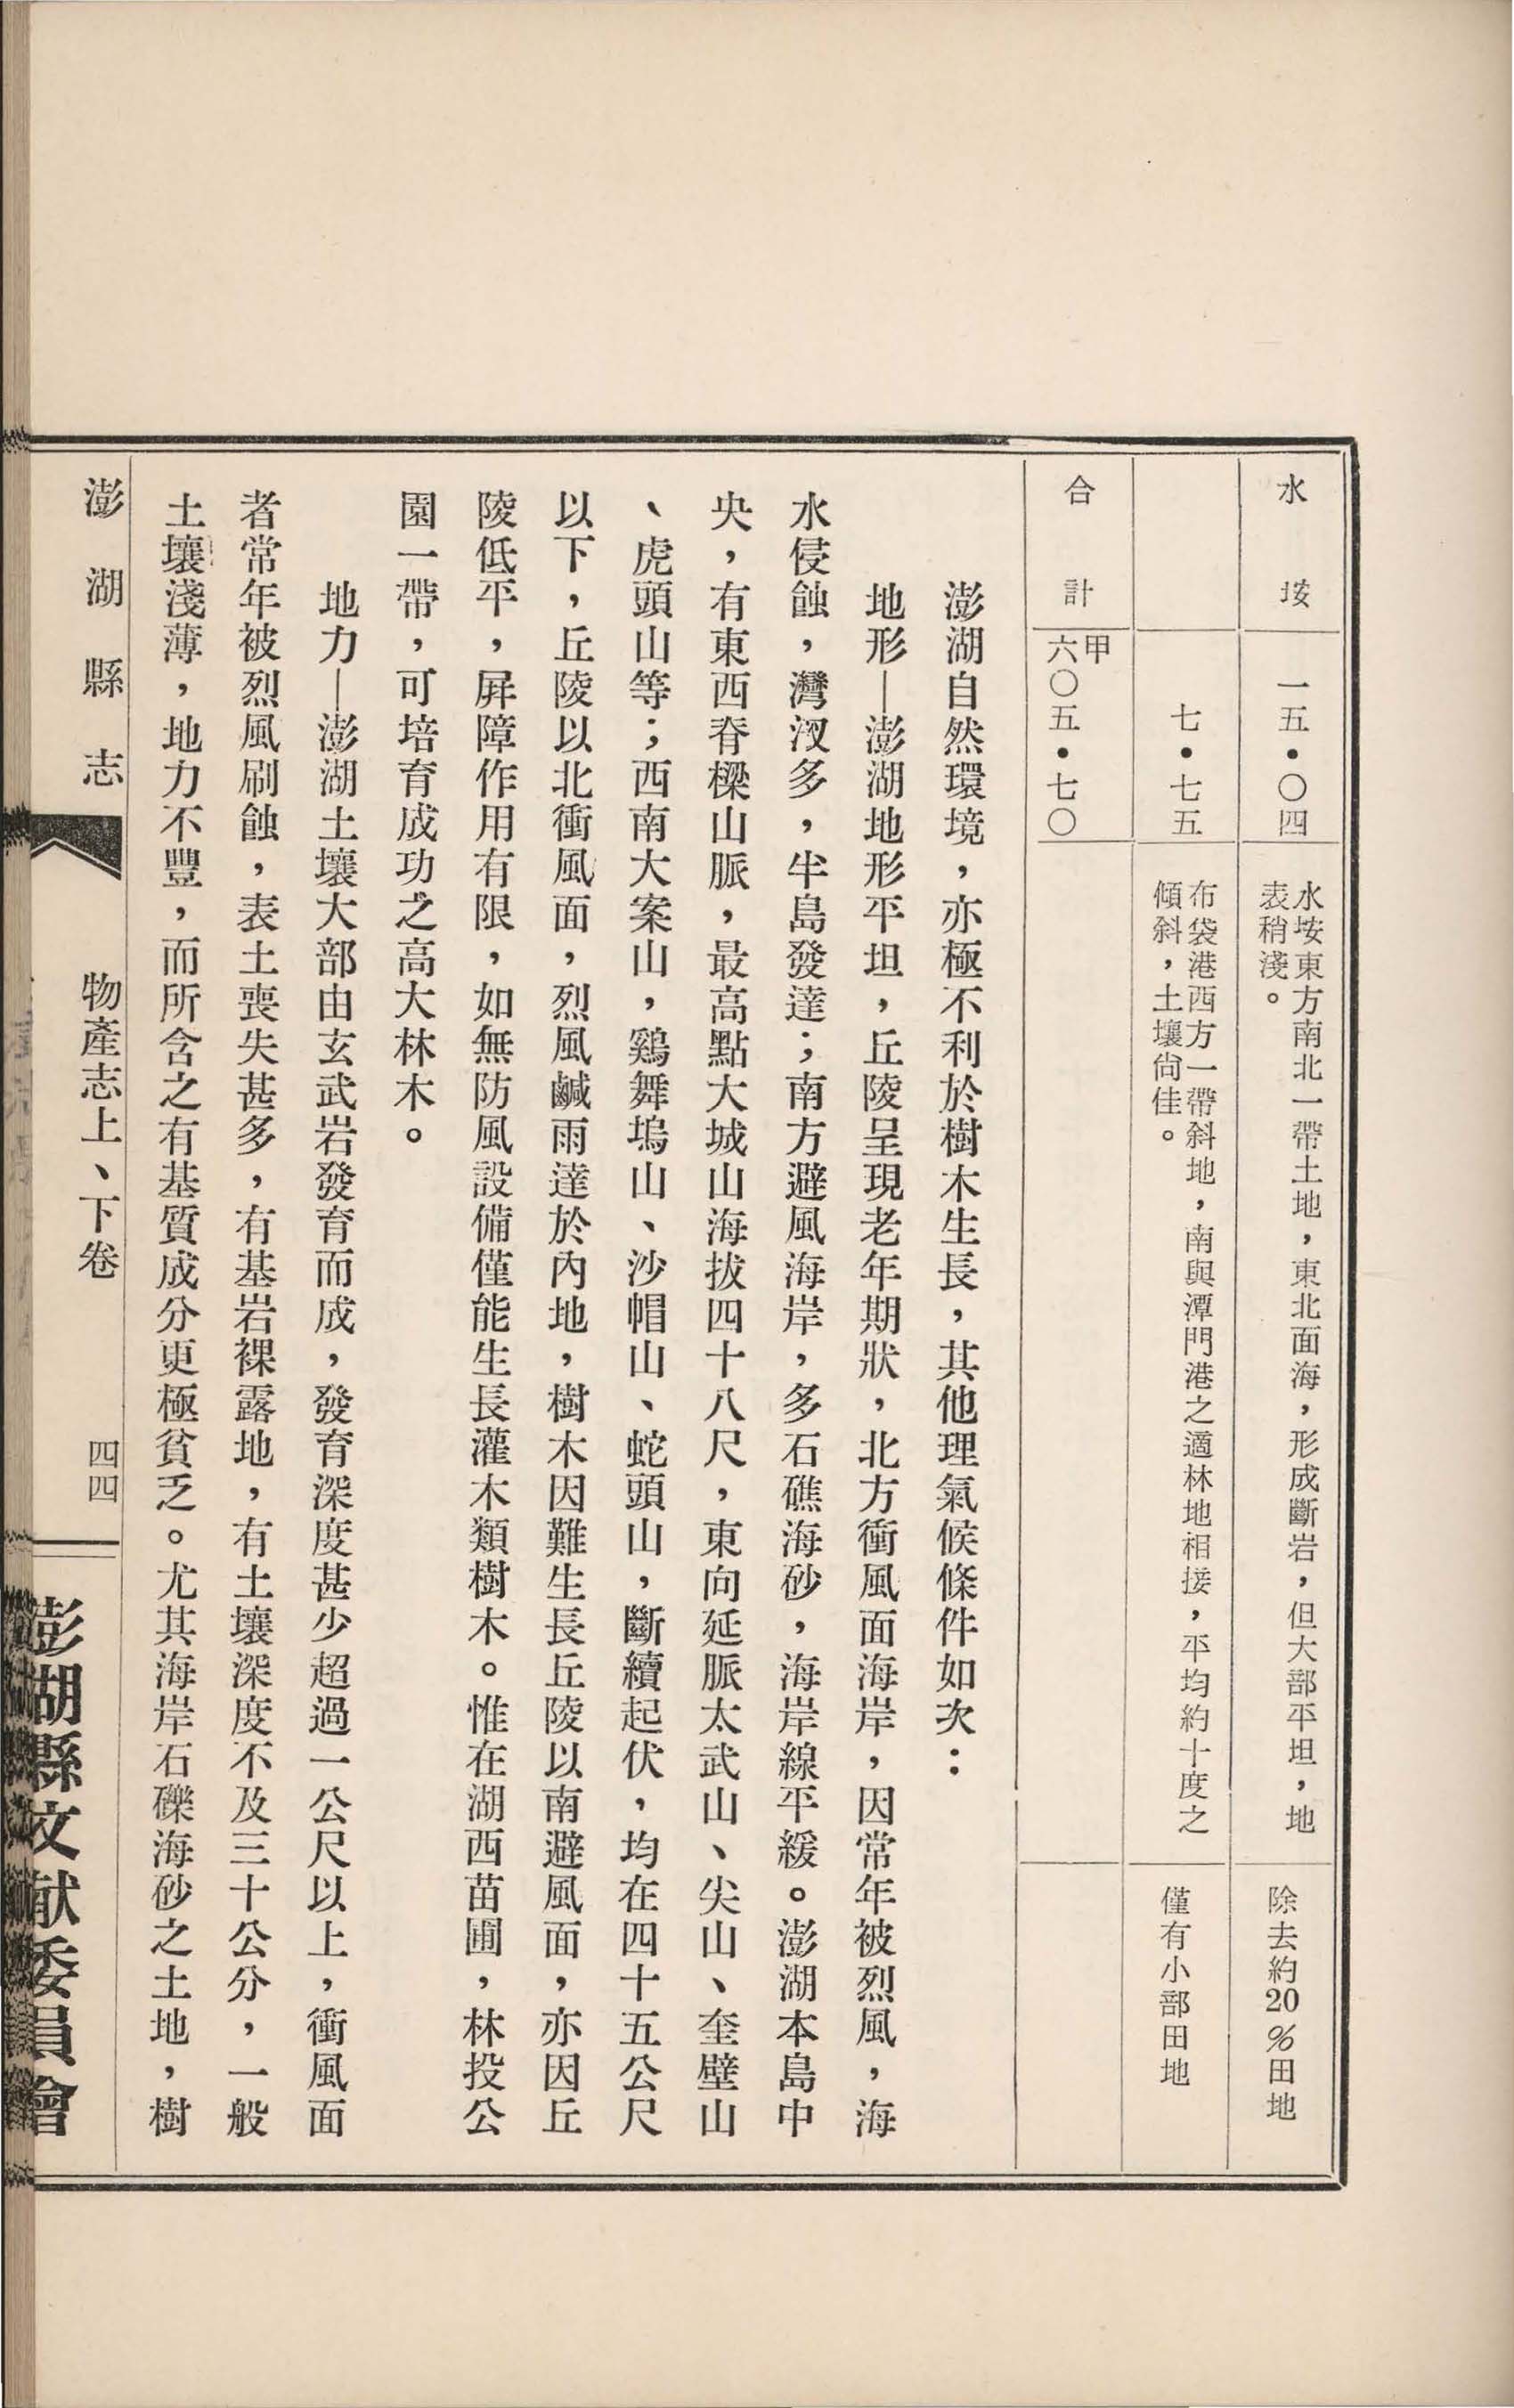 水垵
一五•〇四
水垵東方南北一帶土地，東北面海，形成斷岩，但大部平坦，地
表稍淺。
除去約20%田地
七•七五
布袋港西方一帶斜地，南與潭門港之適林地相接，平均約十度之
傾斜，土壤尙佳。
僅有小部田地
合計
甲
六〇五•七〇
澎湖自然環境，亦極不利於樹木生長，其他理氣候條件如次：
地形—澎湖地形平坦，丘陵呈現老年期狀，北方衝風面海岸，因常年被烈風，海
水侵蝕，灣汊多，半島發達；南方避風海岸，多石礁海砂，海岸線平緩。澎湖本島中
央，有東西脊樑山脈，最高點大城山海拔四十八尺，東向延脈太武山、尖山、奎壁山
、虎頭山等；西南大案山，鷄舞塢山、沙帽山、蛇頭山，斷續起伏，均在四十五公尺
以下，丘陵以北衝風面，烈風鹹雨達於內地，樹木因難生長丘陵以南避風面，亦因丘
陵低平，屛障作用有限，如無防風設備僅能生長灌木類樹木。惟在湖西苗圃，林投公
園一帶，可培育成功之高大林木。
地力—澎湖土壤大部由玄武岩發育而成，發育深度甚少超過一公尺以上，衝風面
者常年被烈風刷蝕，表土喪失甚多，有基岩裸露地，有土壤深度不及三十公分，一般
土壤淺薄，地力不豐，而所含之有基質成分更極貧乏。尤其海岸石礫海砂之土地，樹
澎湖縣志
物產志上、下卷
四四
澎湖縣文献委員會